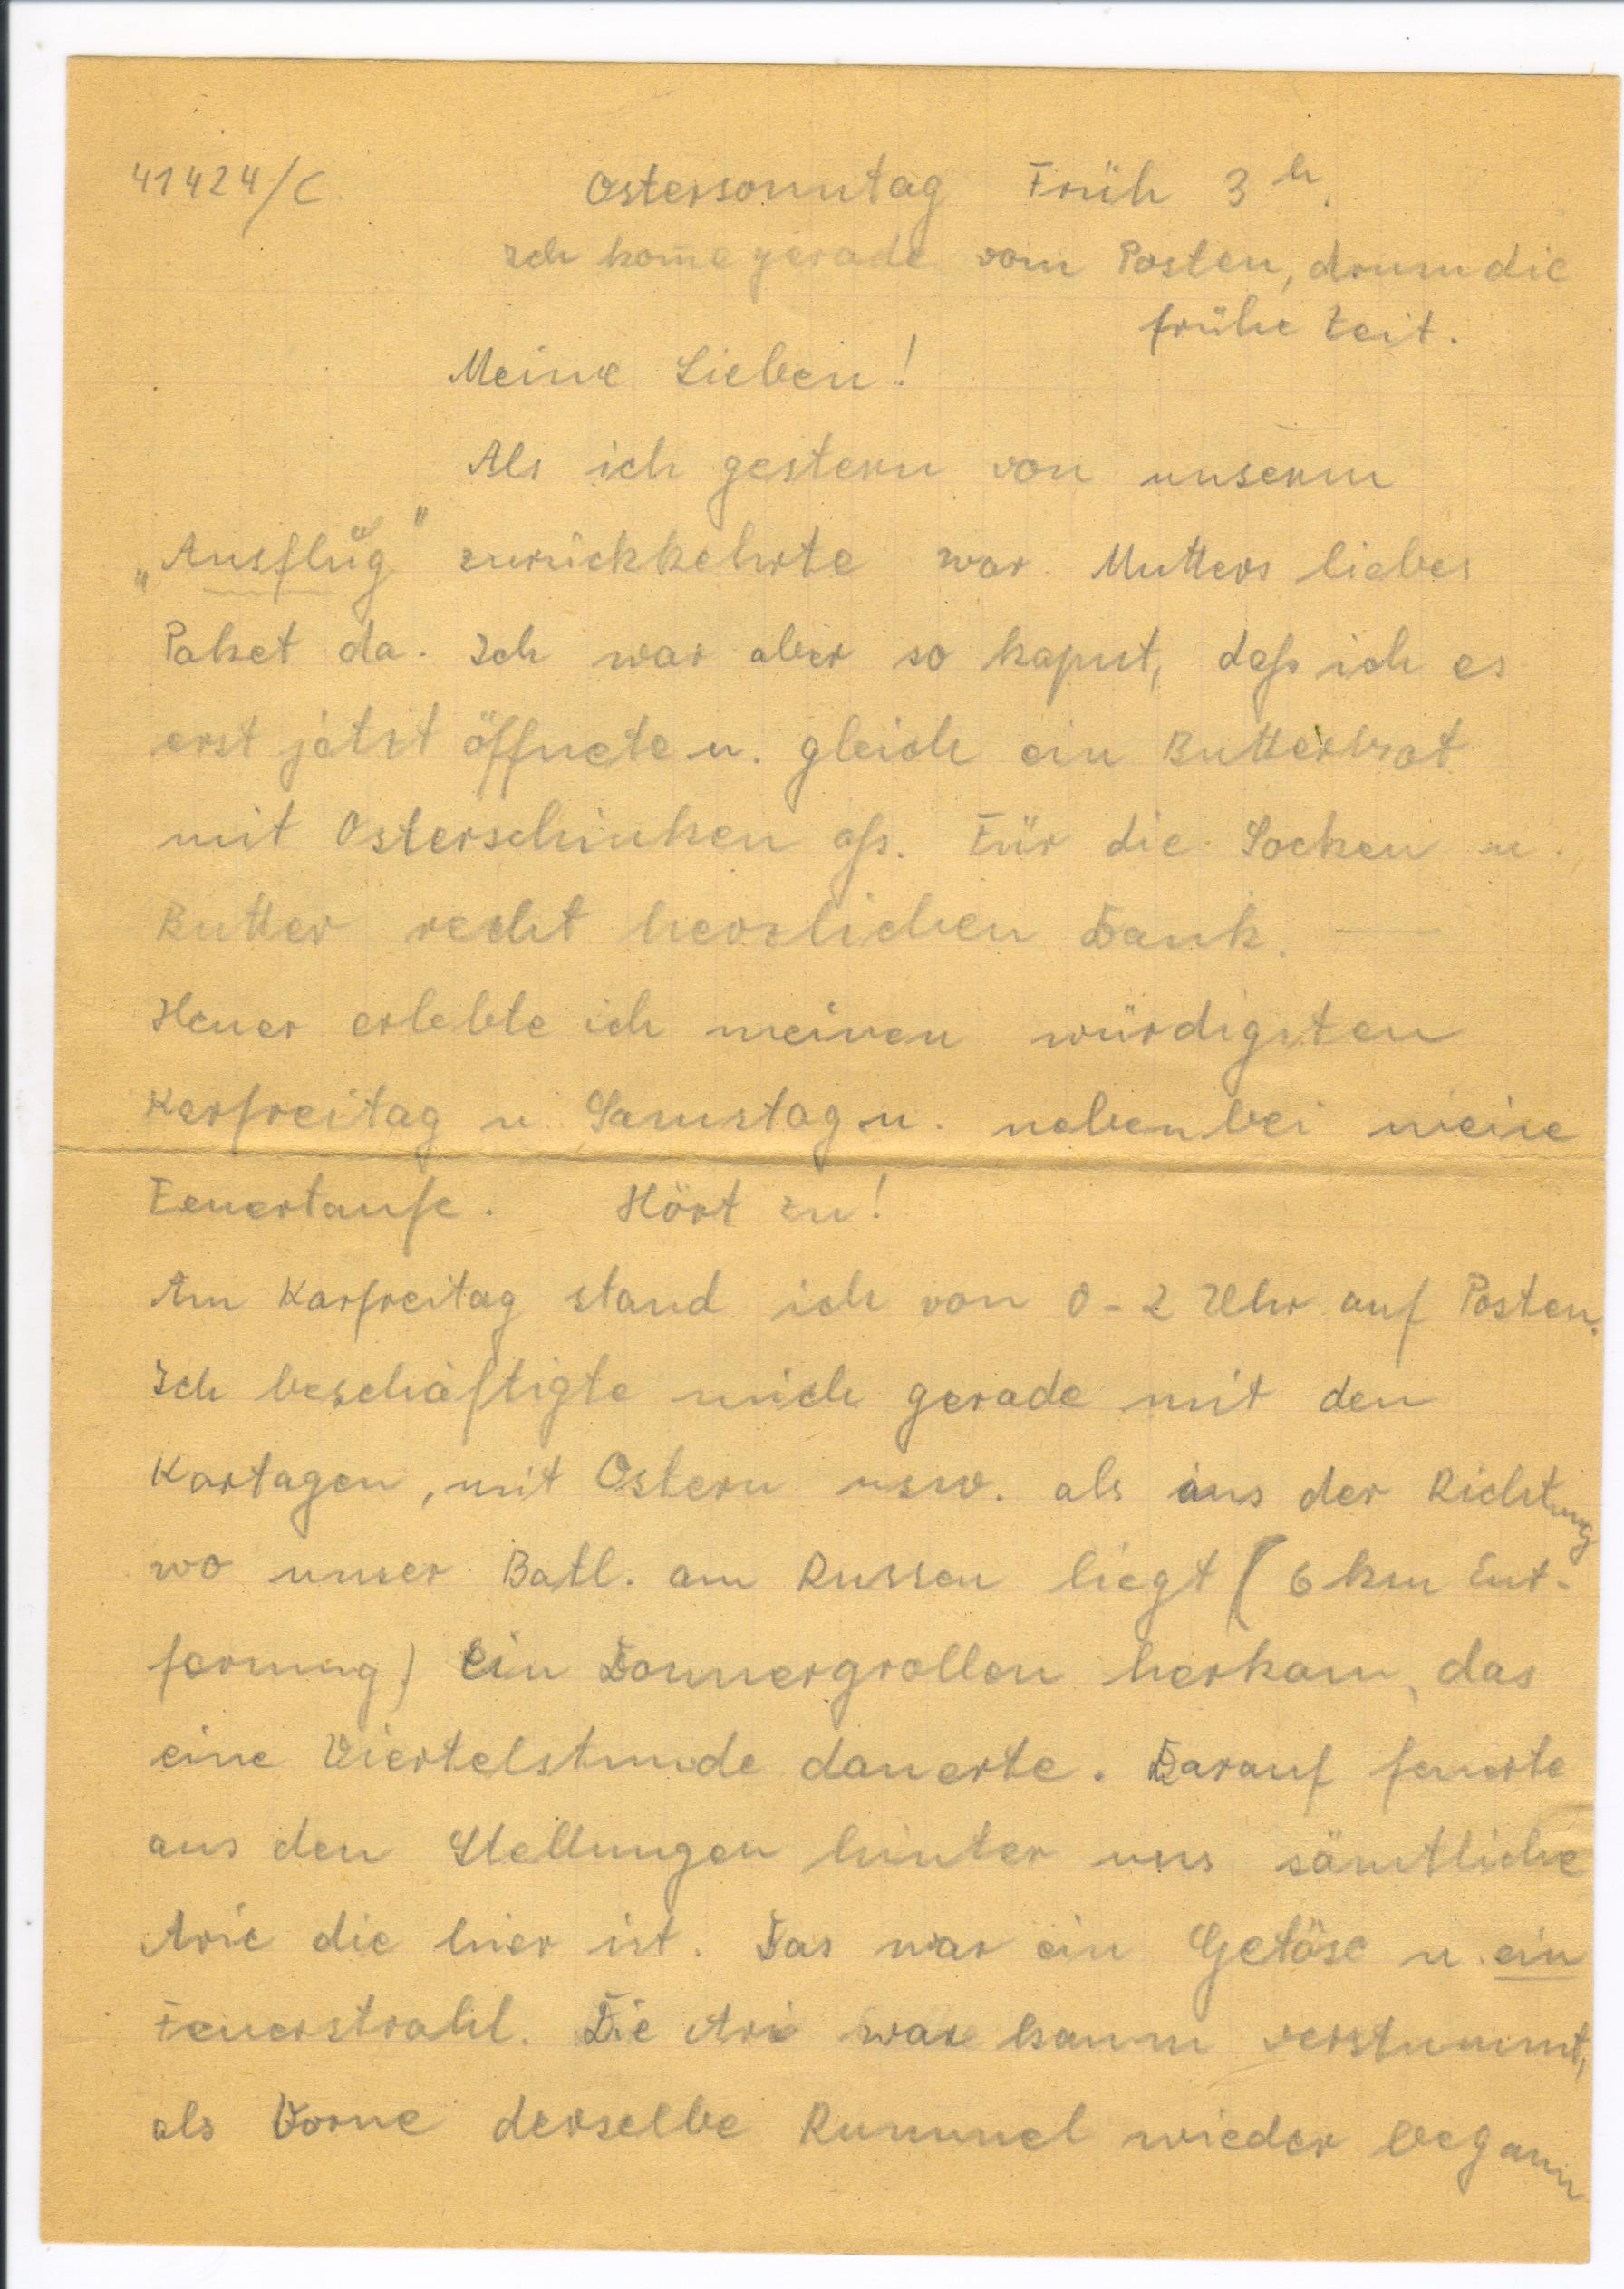 41424/C.
Ostersonntag Früh 3 h.
Ich kom̄e gerade vom Posten, drum die
frühe Zeit.
Meine Lieben!
Als ich gestern von unserm
„Ausflug" zurückkehrte war Mutters liebes
Paket da. Ich war aber so kaput, daß ich es
erst jetzt öffnete u. gleich ein Butterbrot
mit Osterschinken aß. Für die Socken u.
Butter recht herzlichen Dank. —
Heuer erlebte ich meinen würdigsten
Karfreitag u. Samstag u. nebenbei meine
Feuertaufe. Hört zu!
Am Karfreitag stand ich von 0-2 Uhr auf Posten.
Ich beschäftigte mich gerade mit den
Kartagen, mit Ostern usw. als aus der Richtung
wo unser Batl. am Russen liegt (6 km Ent-
fernung) ein Donnergrollen herkam, das
eine Viertelstunde dauerte. Darauf feuerte
aus den Stellungen hinter uns sämtliche
Arie die hier ist. Das war ein Getöse u. ein
Feuerstrahl. Die Ari war kaum verstummt,
als Vorne derselbe Rummel wieder begann